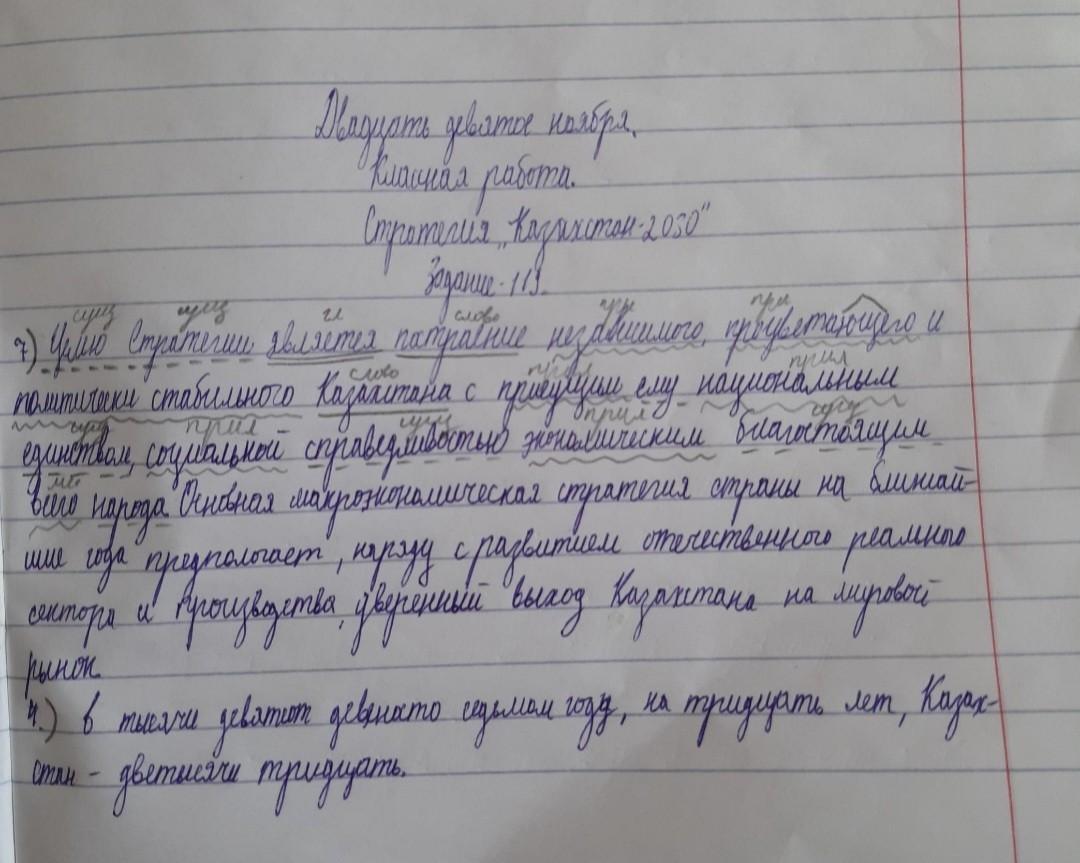 Двадцать девятое ноября.
Классная работа.
Стратегия „Казахстан-2030"
Задание-119.
сущ сущ гл слово при
7) Целю Стратегии является патраение независимого, процветающего и
слово прил
политически стабильного Казахстана с присущим ему национальным
сущ прил сущ прил сущ
единством, социальной справедливостью экономическим благостоящим
мес
всего народа. Основная макроэкономическая стратегия страны на ближай-
шие года предпологает, наряду с развитием отечественного реалного
сектора и производства, уверенный выход Казахстана на мировой
рынок.
4.) в тысячи девятот девяносто седьмом году, на тридцать лет, Казах-
стан - дветысячи тридцать.